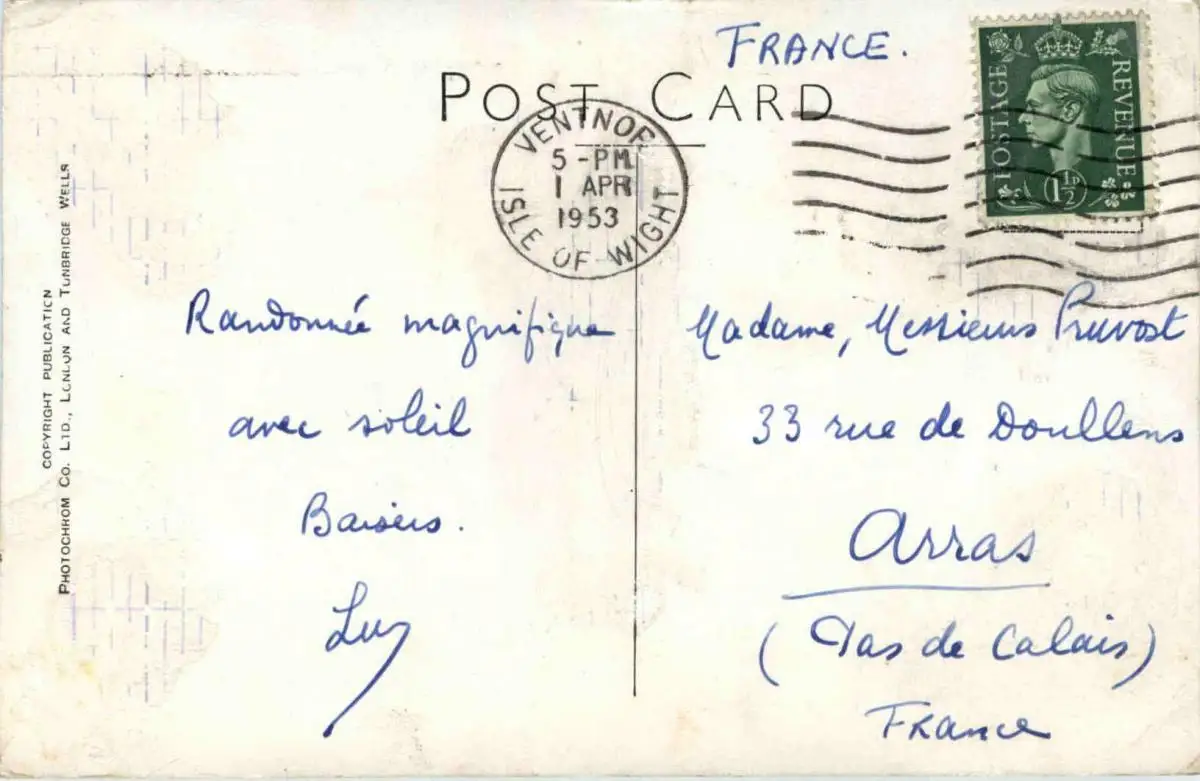 FRANCE.
POST CARD
VENTNOR
5 - PM
1 APR
1953
ISLE OF WIGHT
POSTAGE
REVENUE
1½D
COPYRIGHT PUBLICATION
PHOTOCHROM CO. LTD., LONDON AND TUNBRIDGE WELLS
Randonnée magnifique
avec soleil
Baisers.
Madame, Messieurs Pruvost
33 rue de Doullens
Arras
(Pas de Calais)
France